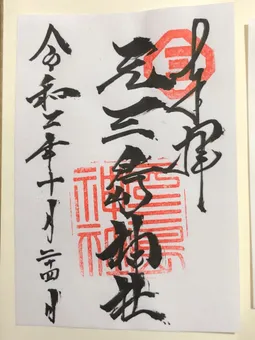 奉拝
元三島神社
令和二年十月二十四日
三島
神社